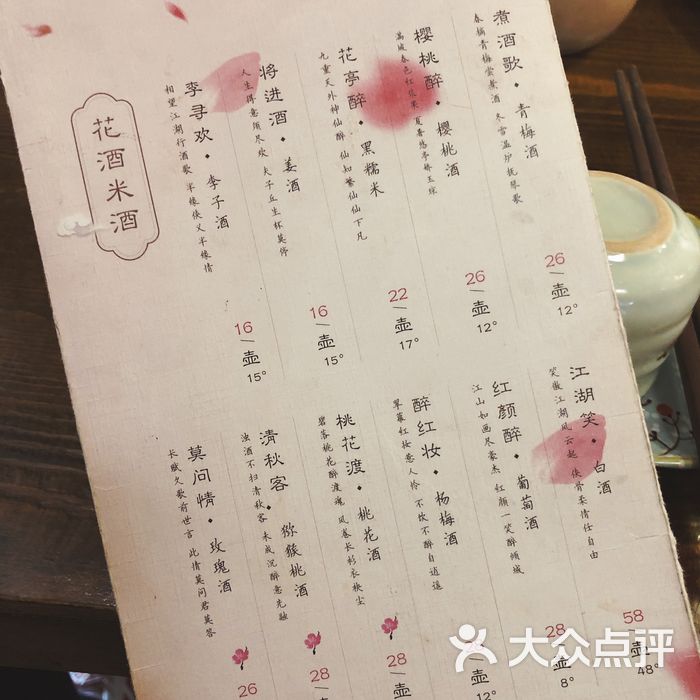 花酒米酒
煮酒歌·青梅酒
春摘青梅尝煮酒 冬雪温炉抚琴歌
26/壶
12°
樱桃醉·樱桃酒
满城春色红浆果
26/壶
12°
花亭醉·黑糯米
九重天外神仙醉 仙知繁仙仙下凡
22/壶
17°
将进酒·姜酒
人生得意须尽欢 夫子丘生杯莫停
16/壶
15°
李寻欢·李子酒
相望江湖行酒歌 半缘侠义半缘情
16/壶
15°
江湖笑·白酒
笑傲江湖风云起 侠骨柔情任自由
58/壶
48°
红颜醉·葡萄酒
江山如画尽豪杰 红颜一笑醉倾城
28/壶
8°
醉红妆·杨梅酒
翠幕红妆惹人怜 不饮不醉自逍遥
壶
12°
桃花渡·桃花酒
碧落桃花醉渡魂 风卷长衫衣袂尘
28/壶
清秋客·猕猴桃酒
浊酒不扫清秋客 未成沉醉意先融
28/壶
莫问情·玫瑰酒
长赋久歌前世言 此情莫问君莫答
26
大众点评